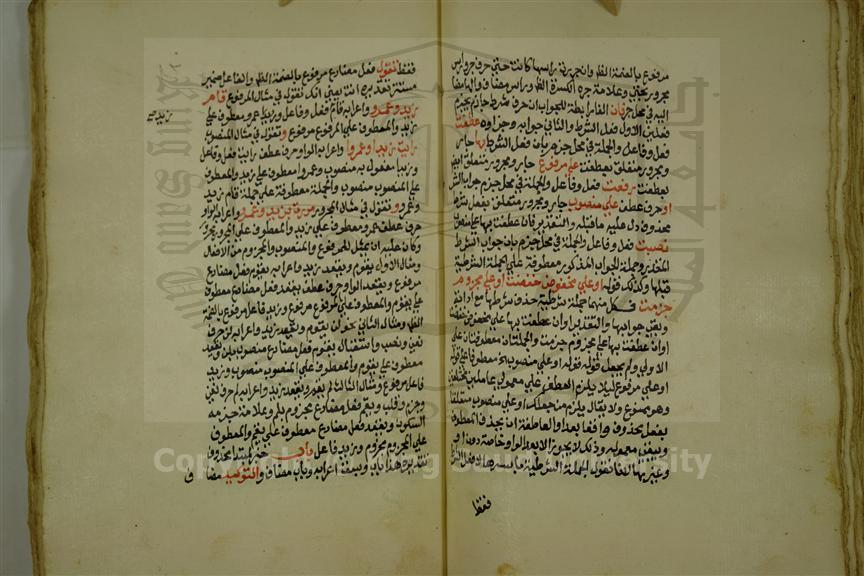 مرفوع بالضمة الظاهرة وان حرف
مجرور بحتى وعلامة جره الكسرة الظاهرة وراس مضاف والهاء مضاف
اليه في محل جر فان الفا رابطة للجواب ان حرف شرط جازم يجزم
فعلين الاول فعل الشرط والثاني جوابه وجزاوه عطفت
فعل وفاعل والجملة في محل جزم بان فعل الشرط بها جار
ومجرور متعلق بعطفت على مرفوع جار ومجرور متعلق ايضا
بعطفت رفعت فعل وفاعل والجملة في محل جزم جواب الشرط
او حرف عطف على منصوب جار ومجرور متعلق بفعل شرط
محذوف دل عليه ما قبله والتقدير فان عطفت بها على منصوب
نصبت فعل وفاعل والجملة في محل جزم بان جواب الشرط
المقدر وجملة الجواب المذكور معطوفة على الجملة الشرطية
قبلها وكذلك قوله او على مخفوض خفضت او على مجزوم
جزمت فكل منهما جملة شرطية حذف شرطها مع اداته
وبقي جوابها والتقدير وان عطفت بها على مخفوض خفضت
وان عطفت بها على مجزوم جزمت والجملتان معطوفتان على
الاولى ولم يجعل قوله او على منصوب معطوفا على قوله
او على مرفوع ليلا يلزم العطف على معمولي عاملين مختلفين
وهو ممنوع ولا يقال يلزم من جعلك او على منصوب متعلقا
بفعل محذوف واقعا بعد او العاطفة ان يحذف المعطوف
ويبقى معموله وذلك لا يجوز الا بعد الواو خاصة دون او
وغيرها لانا نقول الجملة الشرطية
فقط
فقط تقول فعل مضارع مرفوع بالضمة الظاهرة والفاعل ضمير
مستتر تقديره انت يعني انك تقول في مثال المرفوع قام
زيد وعمرو واعرابه قام فعل وفاعل وزيد وعمرو معطوف على
زيد والمعطوف على المرفوع مرفوع وتقول في مثال المنصوب
رايت زيدا وعمروا واعرابه الواو حرف عطف رايت فعل وفاعل
وزيدا مفعول به منصوب وعمروا معطوف على زيد والمعطوف
على المنصوب منصوب والجملة معطوفة على جملة قام زيد
وعمرو وتقول في مثال المجرور مررت بزيد وعمرو واعرابه الواو
حرف عطف عمرو معطوف على زيد والمعطوف على المجرور مجرور
وكان عليه ان يمثل للمرفوع والمنصوب والمجزوم من الافعال
ومثال الاول يقوم ويقعد زيد واعرابه يقوم فعل مضارع
مرفوع ويقعد الواو حرف عطف يقعد فعل مضارع معطوف
على يقوم والمعطوف على المرفوع مرفوع وزيد فاعل مرفوع بالضمة
الظاهرة ومثال الثاني لن يقوم ويقعد زيد واعرابه لن حرف
نفي ونصب واستقبال يقوم فعل مضارع منصوب بلن ويقعد
معطوف على يقوم والمعطوف على المنصوب منصوب وزيد
فاعل مرفوع ومثال الثالث لم يقم ويقعد زيد واعرابه لم حرف نفي
وجزم وقلب ويقم فعل مضارع مجزوم بلم وعلامة جزمه
السكون ويقعد فعل مضارع معطوف على يقم والمعطوف
على المجزوم مجزوم وزيد فاعل باب خبر لمبتدا محذوف
تقديره هذا باب وسبق اعرابه وباب مضاف والتوكيد مضاف
زيد
Copyright © King Saud University